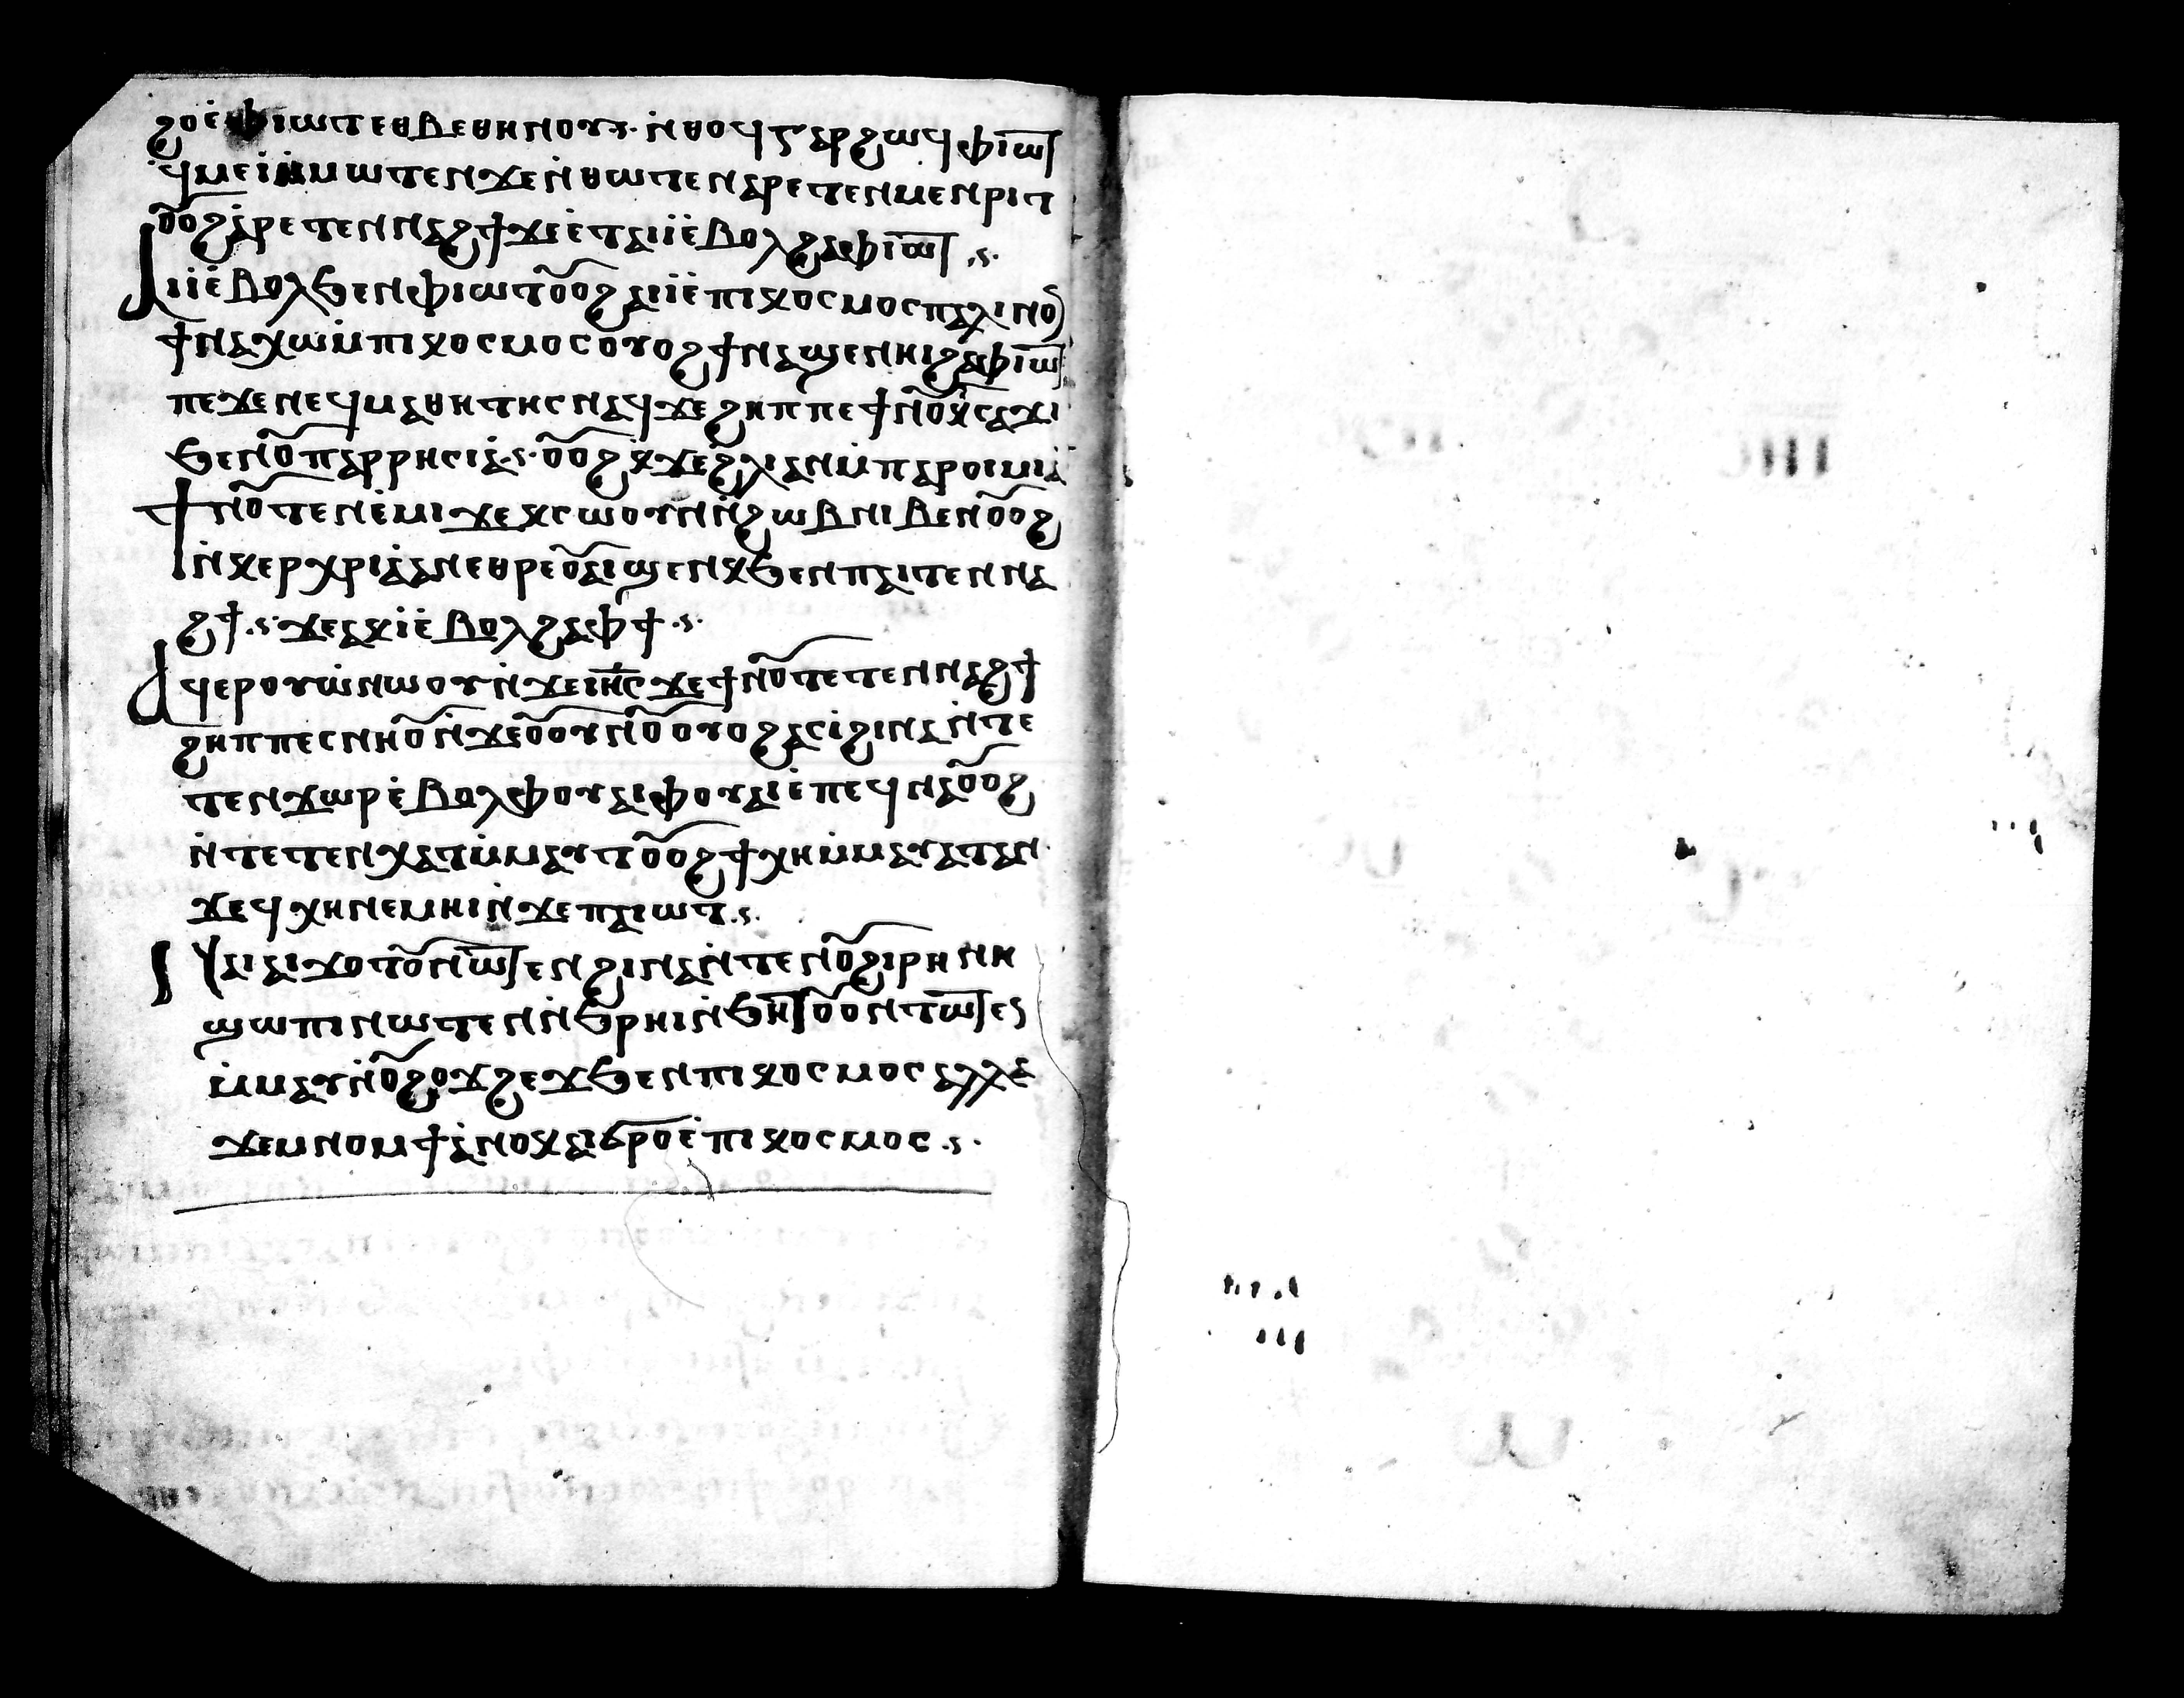 ϩⲟⲉ̇ⲫⲓⲱⲧⲉⲑⲃⲉⲑⲏⲛⲟⲩ·ⲋ· ⲛ̇ⲑⲟϥⲅⲁⲣϩⲱϥⲫⲓⲱ̅ⲧ
ϥⲙⲉⲓⲙ̇ⲙⲱⲧⲉⲛϫⲉⲛ̇ⲑⲱⲧⲉⲛⲁⲣⲉⲧⲉⲛⲙⲉⲛⲣⲓⲧ
ⲟ̅ⲟϩⲁ̇ⲣⲉⲧⲉⲛⲛⲁϩϯϫⲉⲉ̇ⲧⲁⲓⲓ̇ⲉ̇ⲃⲟⲗϩⲁⲫⲓⲱ̅ⲧ ·ⲋ·
ⲁⲓⲓ̇ⲉ̇ⲃⲟⲗϧⲉⲛⲫⲓⲱⲧⲟ̅ⲟϩⲁⲓⲓ̇ⲉ̇ⲡⲓⲕⲟⲥⲙⲟⲥⲡⲁⲗⲓⲛⲟ̅
ϯⲛⲁⲭⲱⲙ̇ⲡⲓⲕⲟⲥⲙⲟⲥⲟⲩⲟϩϯⲛⲁϣⲉⲛⲏⲓϩⲁⲫⲓⲱ̅ⲧ
ⲡⲉϫⲉⲛⲉϥⲙⲁⲑⲏⲧⲏⲥⲛⲁϥϫⲉϩⲏⲡⲡⲉϯⲛⲟ̅ⲕ̇ⲥⲁϫⲓ
ϧⲉⲛⲟ̅ⲡⲁⲣⲣⲏⲥⲓⲁ̇·ⲋ· ⲟ̅ⲟϩⲕ̇ϫⲉϩ̇ⲗⲓⲁⲛⲙ̇ⲡⲁⲣⲟⲓⲙⲓⲁ̇
ϯⲛⲟ̅ⲧⲉⲛⲉ̇ⲙⲓϫⲉⲕⲥⲱⲟⲩⲛⲛ̇ϩⲱⲃⲛⲓⲃⲉⲛⲟ̅ⲟϩ
ⲛ̇ⲕⲉⲣⲭⲣⲓⲁ̇ⲁⲛⲉⲑⲣⲉⲟ̅ⲁⲓϣⲉⲛⲕϧⲉⲛⲡⲁⲓⲧⲉⲛⲛⲁ
ϩϯ·ⲋ· ϫⲉⲁⲕⲓ̇ⲉ̇ⲃⲟⲗϩⲁⲫϯ·ⲋ·
ⲁϥⲉⲣⲟⲩⲱ̇ⲛⲱⲟⲩⲛ̇ϫⲉⲓⲏ̅ⲥϫⲉϯⲛⲟ̅ⲧⲉⲧⲉⲛⲛⲁϩϯ
ϩⲏⲡⲡⲉⲥⲛⲏⲟ̅ⲛ̇ϫⲉⲟ̅ⲟⲩⲛⲟ̅ⲟⲩⲟϩⲁⲥⲓ̇ϩⲓⲛⲁⲛ̇ⲧⲉ
ⲧⲉⲛϫⲱⲣⲉ̇ⲃⲟⲗⲫⲟⲩⲁⲓⲫⲟⲩⲁⲓⲉ̇ⲡⲉϥⲙⲁⲟ̅ⲟϩ
ⲛ̇ⲧⲉⲧⲉⲛⲭⲁⲧⲙ̇ⲙⲁⲩⲧⲟ̅ⲟϩϯⲭⲏⲙ̇ⲙⲁⲩⲁⲧⲁⲛ·
ϫⲉϥⲭⲏⲛⲉⲙⲏⲓⲛ̇ϫⲉⲡⲁⲓⲱⲧ·ⲋ·
ⲛⲁⲓⲁⲓϫⲟⲧⲟ̅ⲛⲱ̅ⲧⲉⲛϩⲓⲛⲁⲛ̇ⲧⲉⲛⲟ̅ϩⲓⲣⲏⲛⲏ
ϣⲱⲡⲓⲛⲱⲧⲉⲛⲛ̇ϧⲣⲏⲓⲛ̇ϧⲏ̅ⲧⲟ̅ⲟⲛⲧⲱ̅ⲧⲉⲛ
ⲙ̇ⲙⲁⲩⲛ̇ⲟ̅ϩⲟϫϩⲉϫϧⲉⲛⲡⲓⲕⲟⲥⲙⲟⲥⲁⲗⲗⲁ
ϫⲉⲙⲛⲟⲙϯⲁ̇ⲛⲟⲕⲁⲓϭⲣⲟⲉ̇ⲡⲓⲕⲟⲥⲙⲟⲥ·ⲋ·